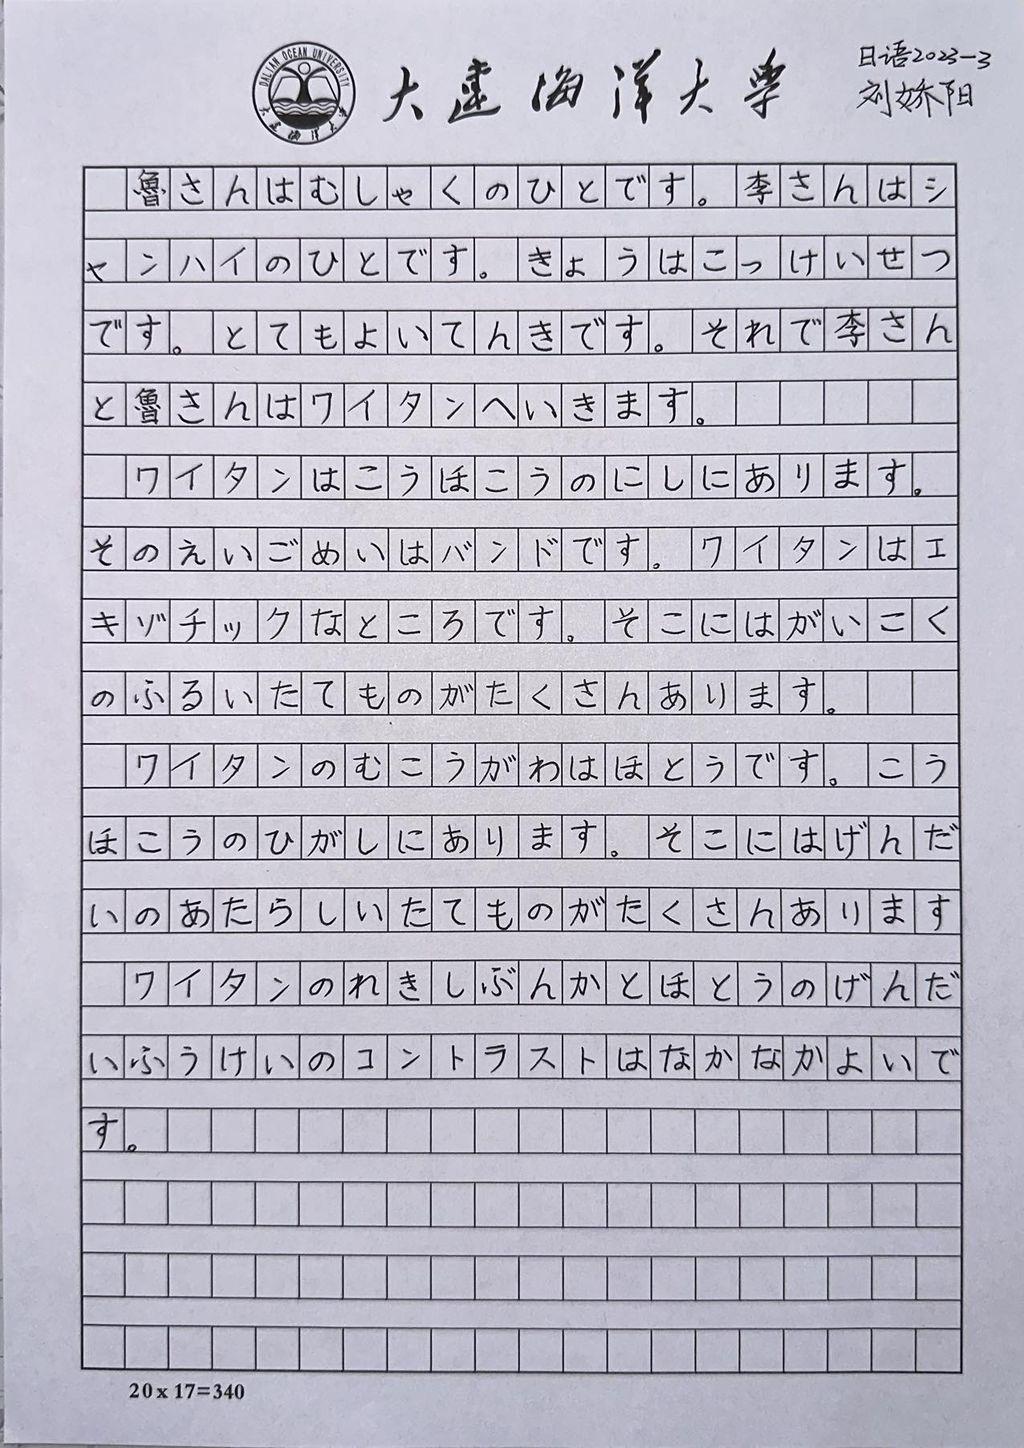 DALIAN OCEAN UNIVERSITY
大连海洋大学
大连海洋大学
日语2023-3
刘娇阳
魯さんはむしゃくのひとです。李さんはシ
ャンハイのひとです。きょうはこっけいせつ
です。とてもよいてんきです。それで李さん
と魯さんはワイタンへいきます。
ワイタンはこうほこうのにしにあります。
そのえいごめいはバンドです。ワイタンはエ
キゾチックなところです。そこにはがいこく
のふるいたてものがたくさんあります。
ワイタンのむこうがわはほとうです。こう
ほこうのひがしにあります。そこにはげんだ
いのあたらしいたてものがたくさんあります
ワイタンのれきしぶんかとほとうのげんだ
いふうけいのコントラストはなかなかよいで
す。
20x17=340